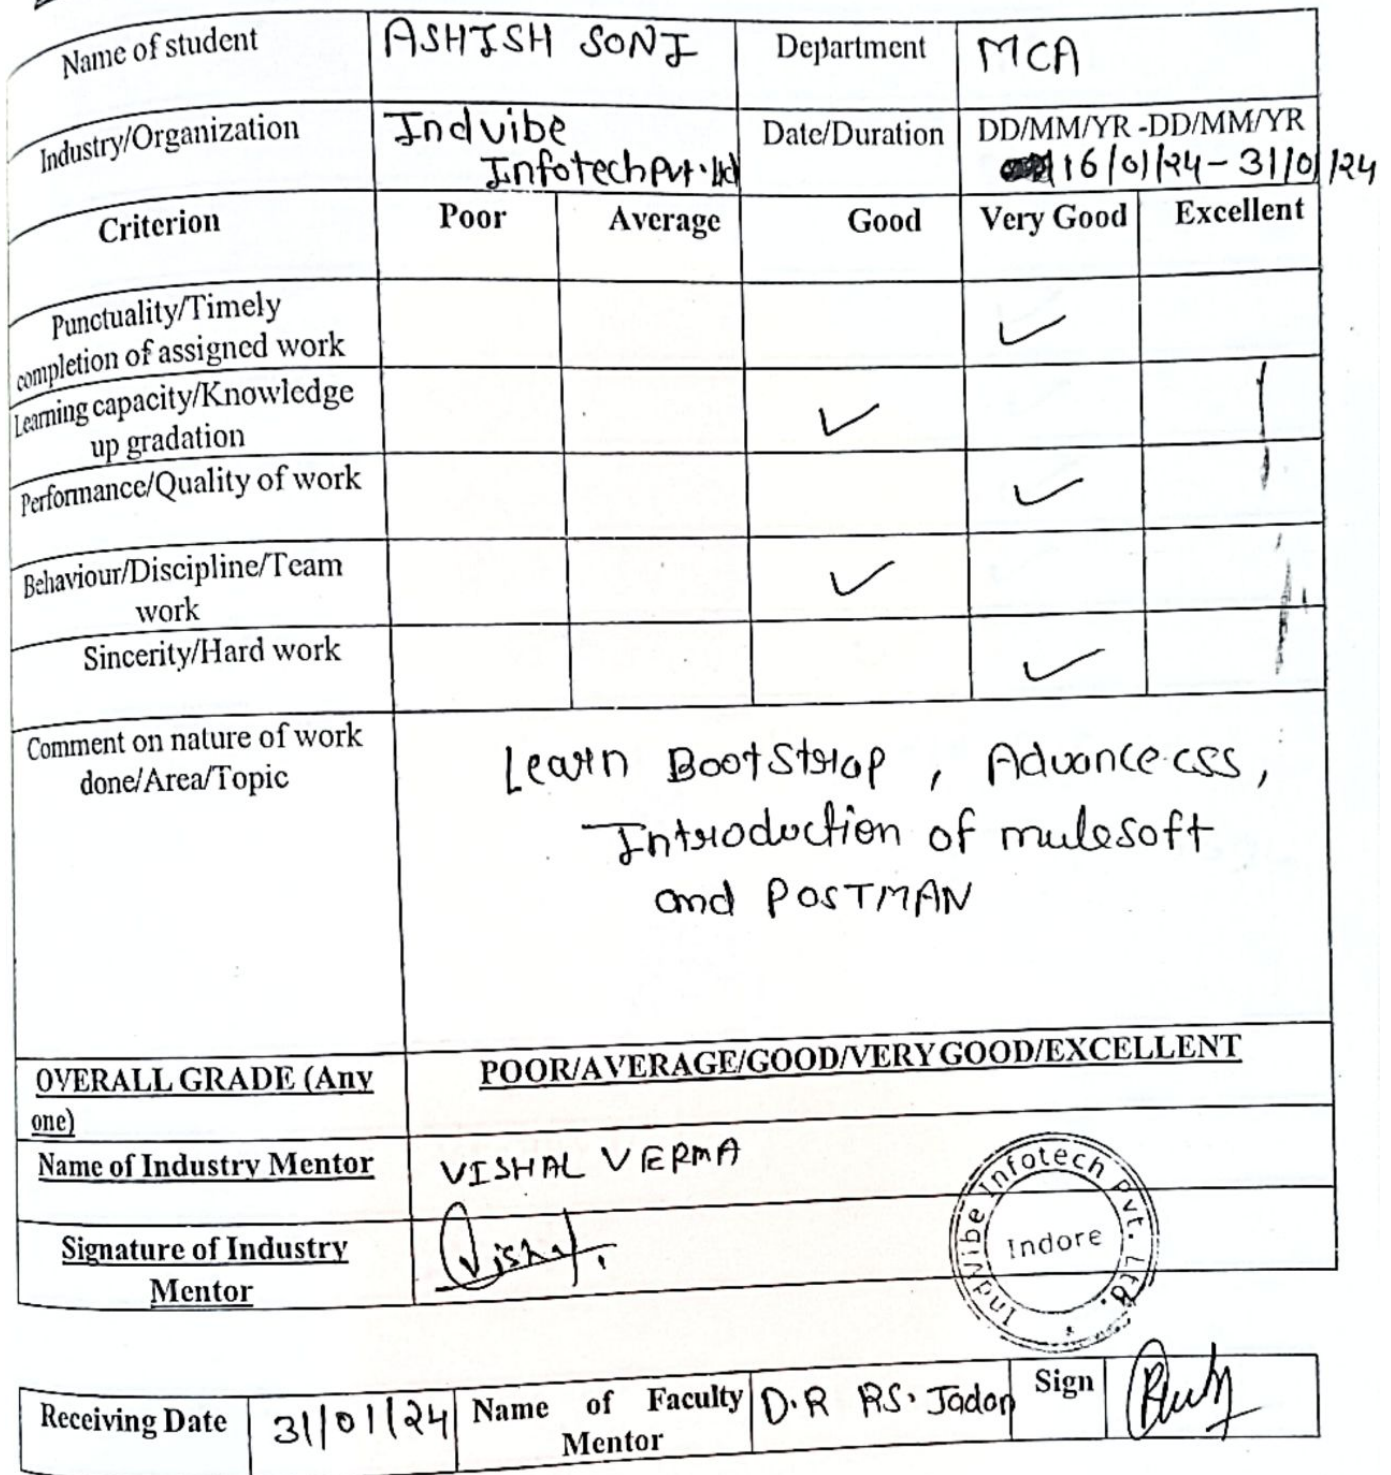 Name of student ASHISH SONI Department MCA
Industry/Organization Indvibe Infotech Pvt. Ltd Date/Duration DD/MM/YR -DD/MM/YR
16/01/24 - 31/01/24
Criterion Poor Average Good Very Good Excellent
Punctuality/Timely
completion of assigned work ✓
Learning capacity/Knowledge
up gradation ✓
Performance/Quality of work ✓
Behaviour/Discipline/Team
work ✓
Sincerity/Hard work ✓
Comment on nature of work
done/Area/Topic
Learn BootStrap , Advance css,
Introduction of mulesoft
and POSTMAN
OVERALL GRADE (Any
one)
POOR/AVERAGE/GOOD/VERY GOOD/EXCELLENT
Name of Industry Mentor VISHAL VERMA
Signature of Industry
Mentor
Vishal.
IndVibe Infotech Pvt. Ltd.
Indore
Receiving Date 31/01/24 Name of Faculty
Mentor D.R RS. Jadon Sign